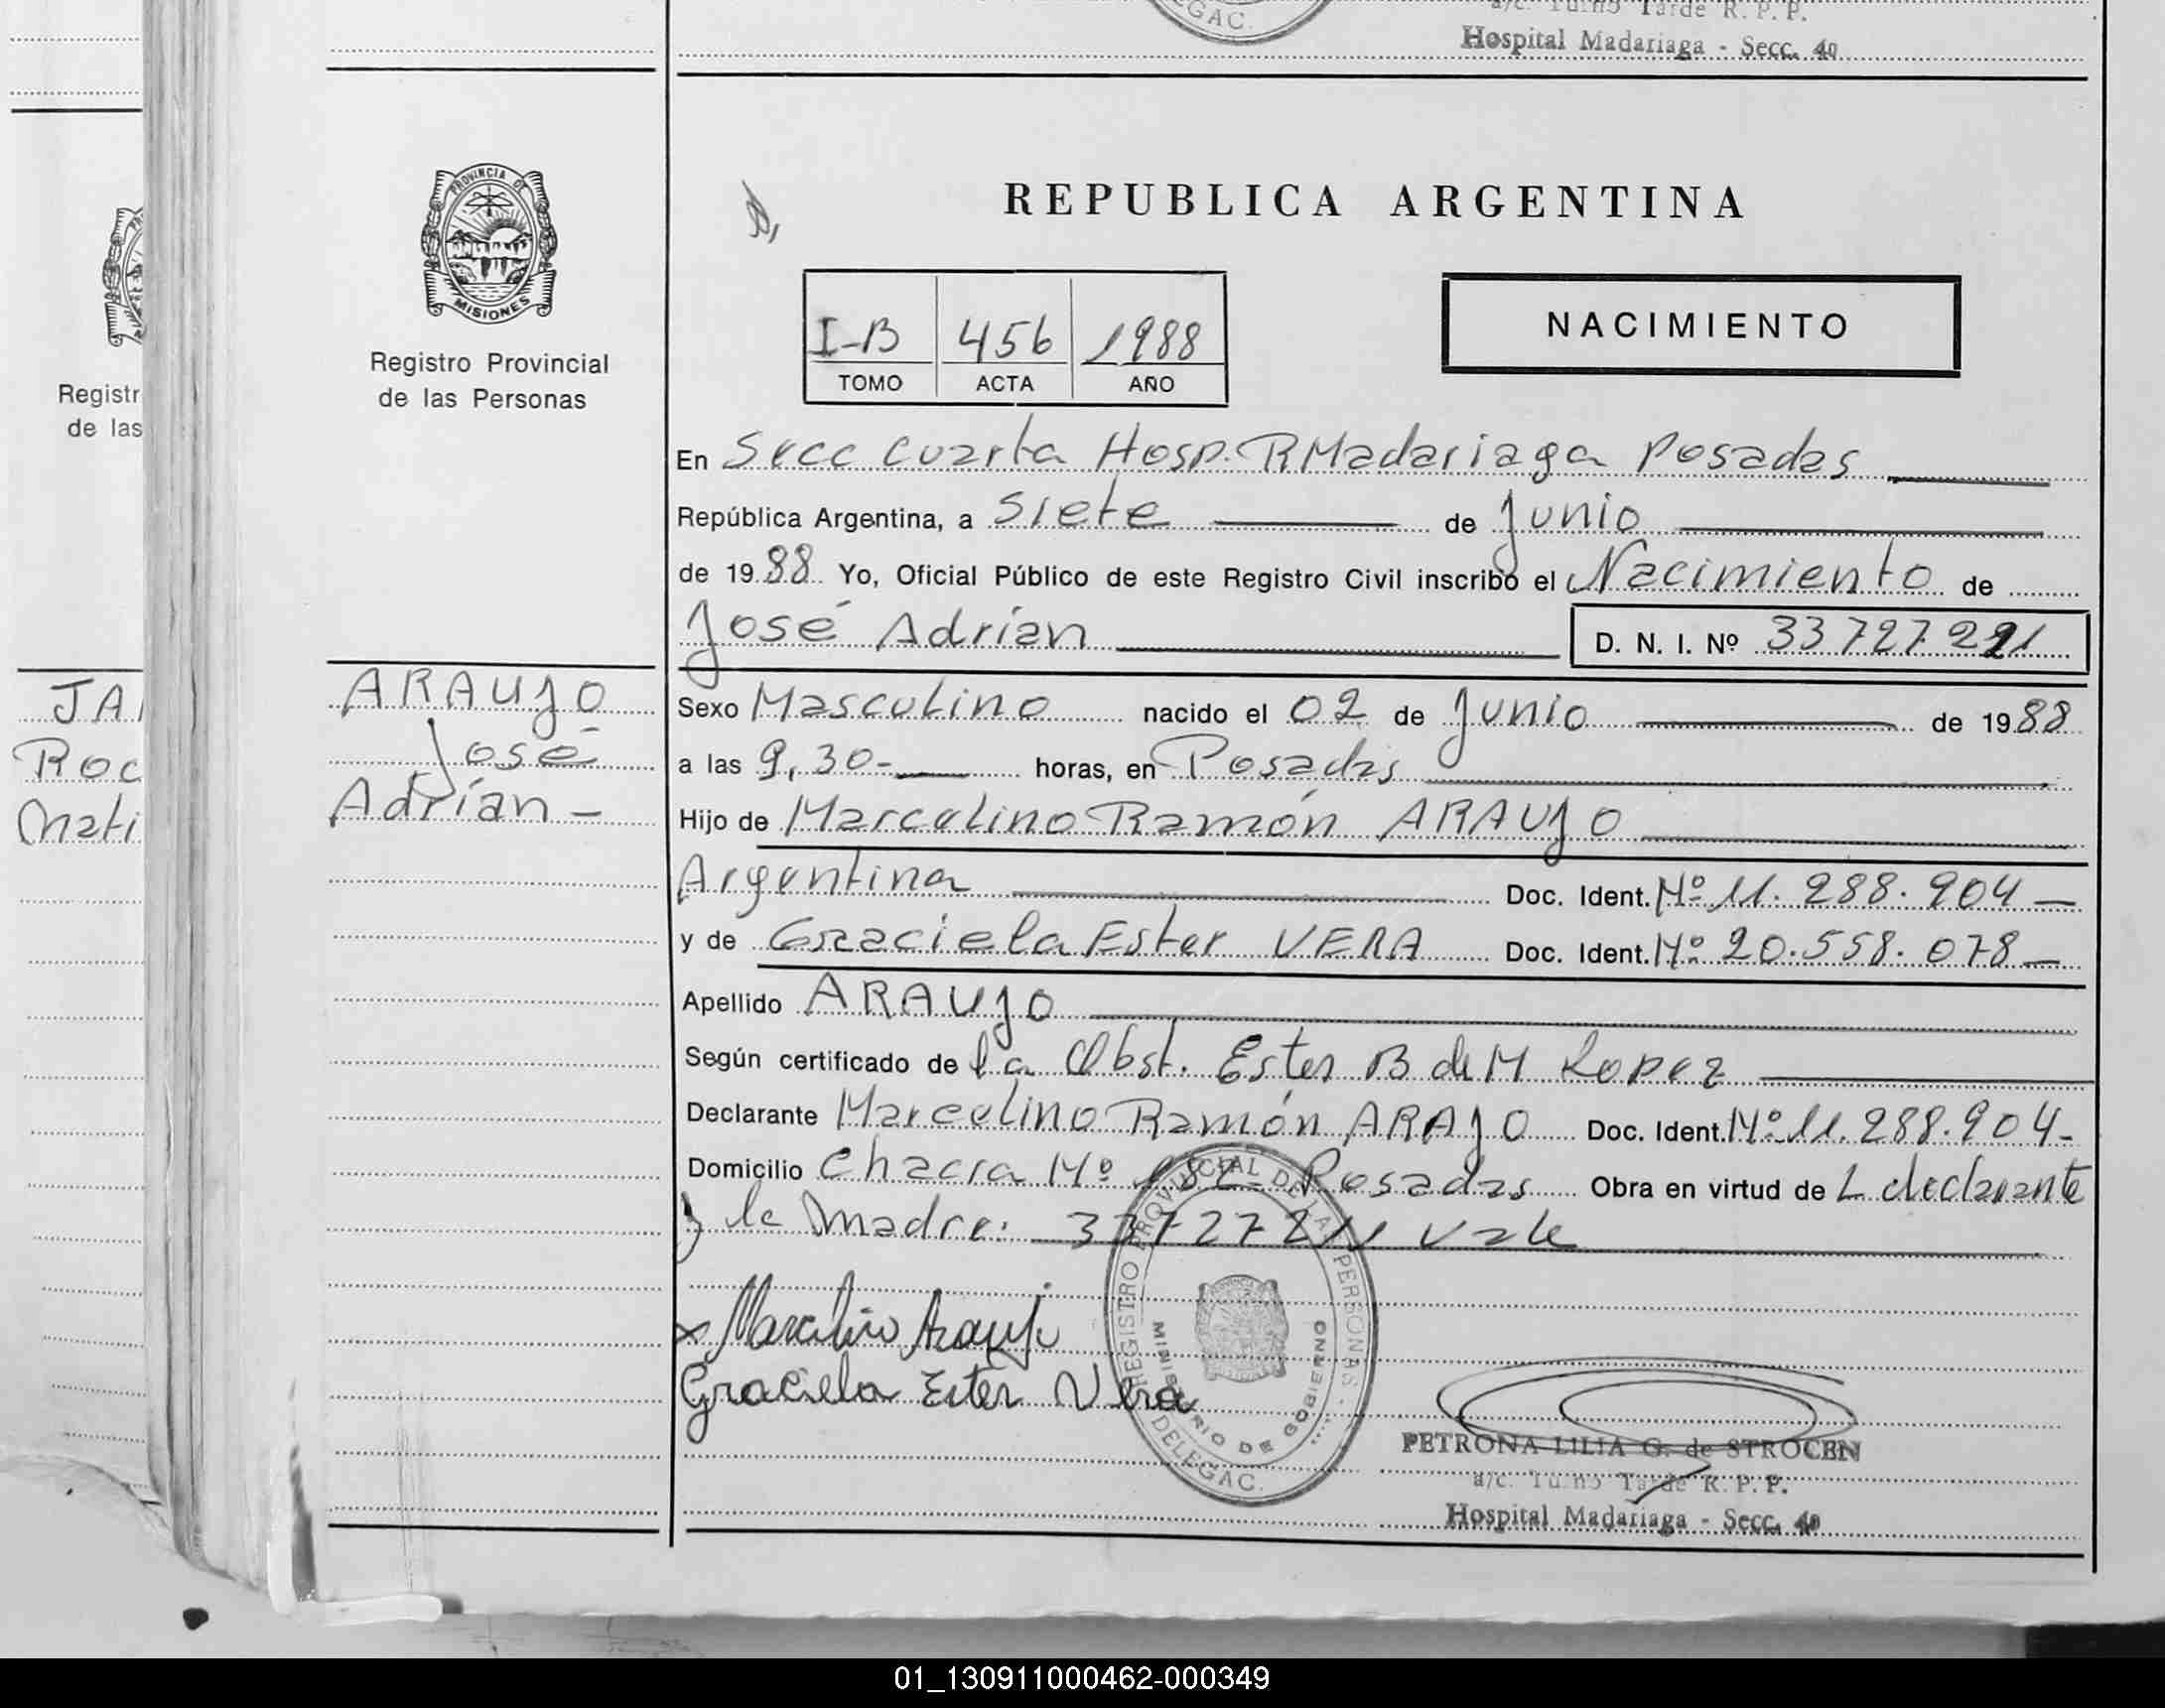 a/c. Turno Tarde R. P. P.
Hospital Madariaga - Secc. 4a
GAC.
PROVINCIA DE
MISIONES
Registro Provincial
de las Personas
REPUBLICA ARGENTINA
I-B 456 1988
TOMO ACTA AÑO
NACIMIENTO
Registr
de las
En Secc Cuarta Hosp. R Madariaga Posadas
República Argentina, a Siete de Junio
de 1988 Yo, Oficial Público de este Registro Civil inscribo el Nacimiento de
José Adrían
D. N. I. Nº 33727221
JA
Roc
Mati
ARAUJO
José
Adrían -
Sexo Masculino nacido el 02 de Junio de 1988
a las 9,30- horas, en Posadas
Hijo de Marcelino Ramón ARAUJO
Argentina Doc. Ident. Nº 11.288.904 -
y de Graciela Ester VERA Doc. Ident. Nº 20.558.078 -
Apellido ARAUJO
Según certificado de la Obst. Ester B de M Lopez
Declarante Marcelino Ramón ARAJO Doc. Ident. Nº 11.288.904-
Domicilio Chacra Nº 182- Posadas Obra en virtud de L declarante
y la Madre: Vale
Marcelino Araujo
Graciela Ester Vera
REGISTRO PROVINCIAL DE LAS PERSONAS
MINISTERIO DE GOBIERNO
DELEGAC.
PETRONA LILIA G. de STROCEN
a/c. Turno Tarde R. P. P.
Hospital Madariaga - Secc. 4a
01_130911000462-000349